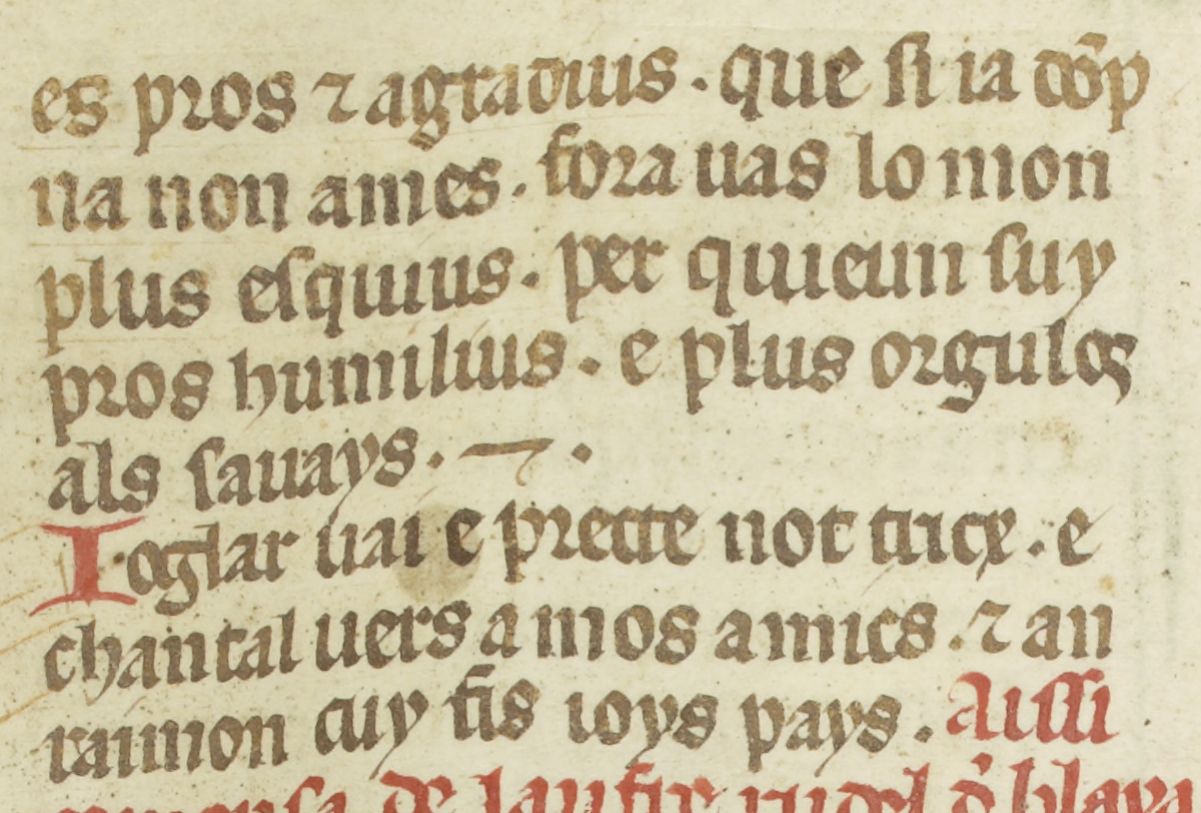 es pros ⁊ agradius · que si ia dōp
na non ames · fora uas lo mon
plus esquius · per quieu n suy
pros humilius · e plus orgulos
als sauays ·
Ioglar uai e prec te not tricx · e
chantal uers a mos amics · ⁊ an
raimon cuy fis ioys pays · Aissi
de iaufre rudel